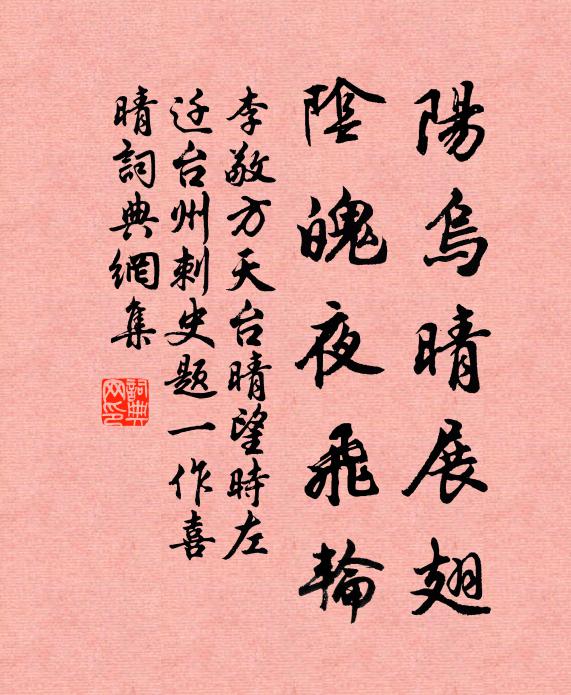 陽烏晴展翅
陰魄夜飛輪
李敬方天台晴望時左
迁台州刺史題一作喜
晴詞典網集
詞典
网印